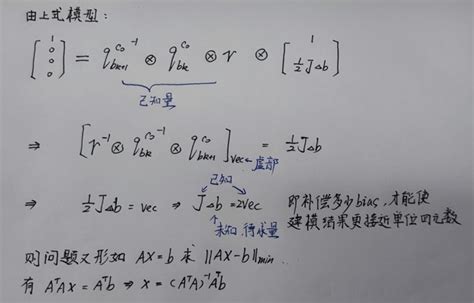 由上式模型:
[1 0 0 0] = q_{bk+1}^{c0 -1} ⊗ q_{bk}^{c0} ⊗ γ ⊗ [1 ½JΔb]
已知量
⇒ [γ^{-1} ⊗ q_{bk}^{c0 -1} ⊗ q_{bk+1}^{c0}]_{vec} = ½JΔb
←虚部
⇒ ½JΔb = vec ⇒ JΔb = 2vec 即补偿多少bias,才能使
已知
未知 待求量 建模结果更接近单位四元数
则问题又形如 AX=b 求 ||AX-b||min
有 AᵀAX = Aᵀb ⇒ X = (AᵀA)⁻¹Aᵀb